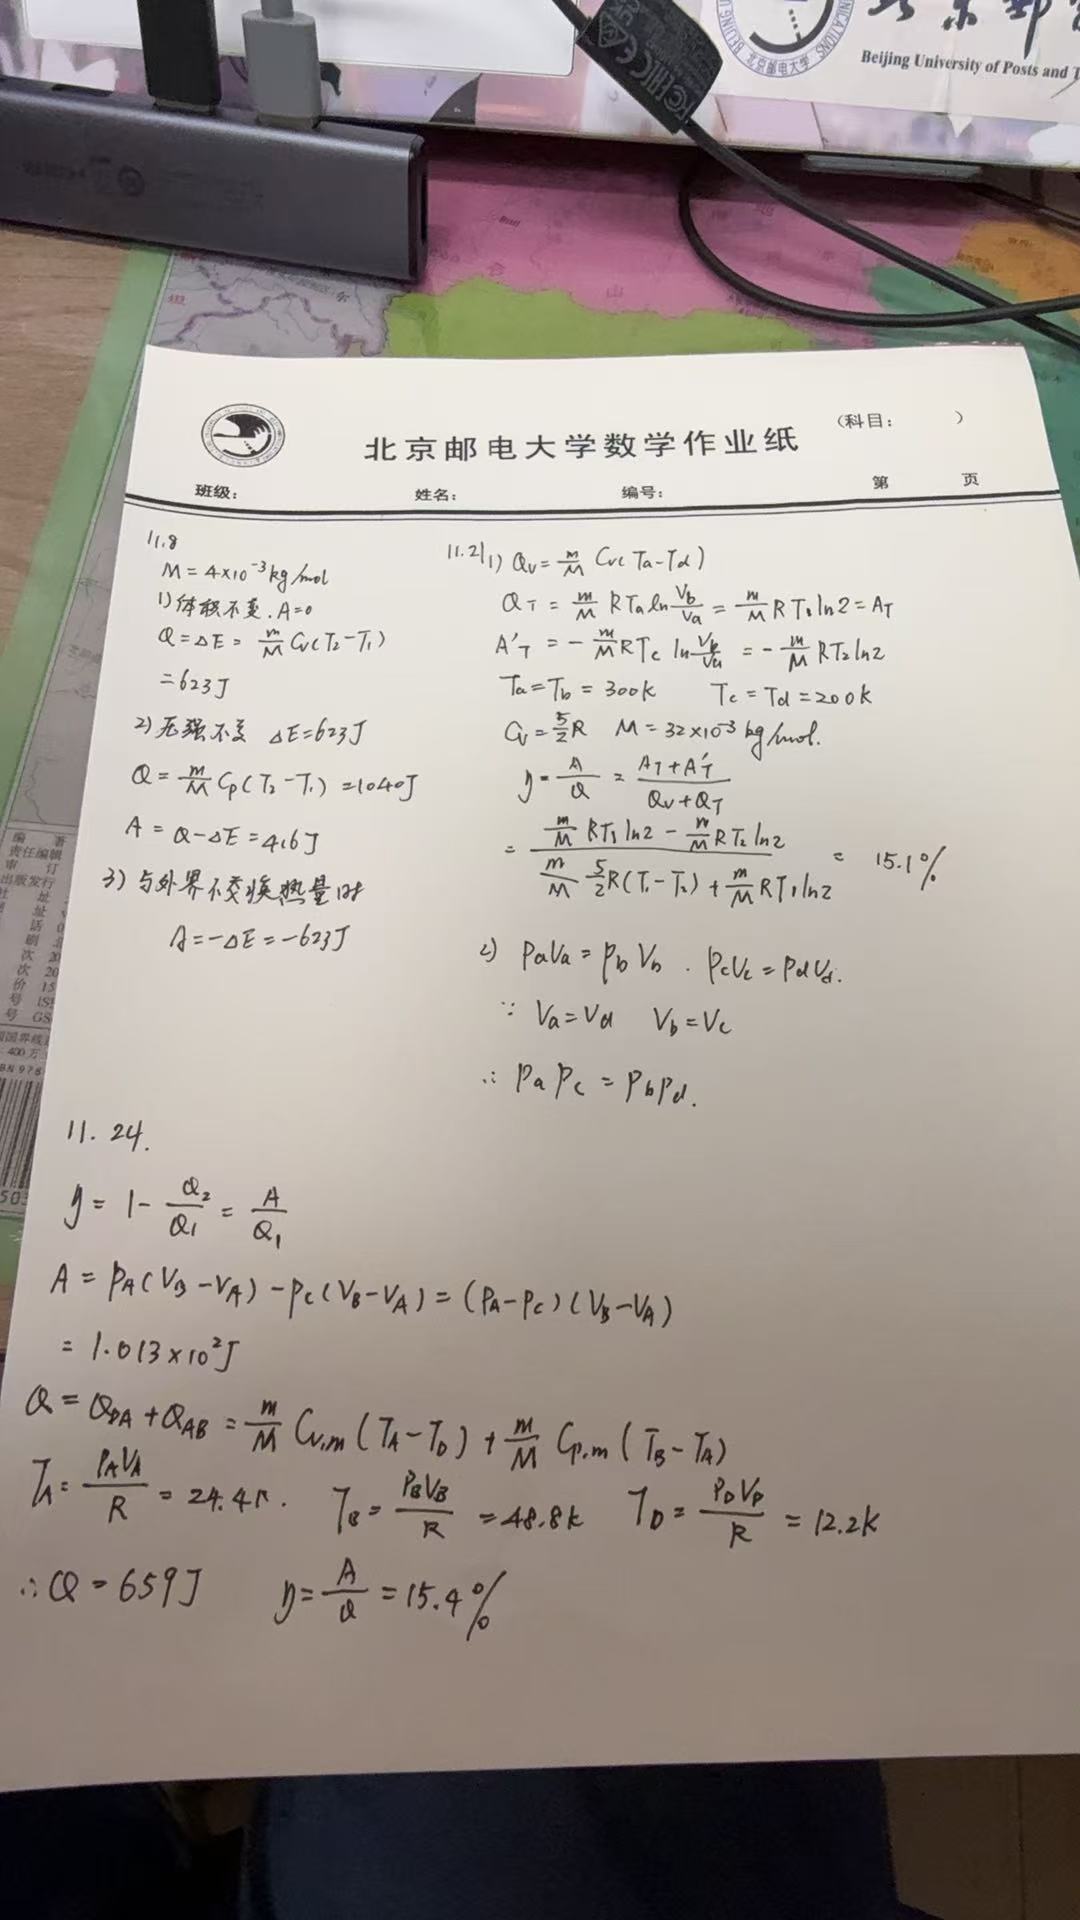 Beijing University of Posts and T
TCHIC CE
北京邮电大学数学作业纸
(科目: )
班级: 姓名: 编号: 第 页
11.8
M = 4×10⁻³ kg/mol
1) 体积不变. A=0
Q = ΔE = m/M Cv(T₂-T₁)
= 623J
2) 压强不变 ΔE=623J
Q = m/M Cp(T₂-T₁) = 1040J
A = Q-ΔE = 416J
3) 与外界不交换热量时
A = -ΔE = -623J
11.21 1) Qv = m/M Cv(Ta-Td)
QT = m/M RTa ln Vb/Va = m/M RT₁ ln2 = AT
A'T = - m/M RTc ln Vb/Va = - m/M RT₂ ln2
Ta=Tb = 300k Tc = Td = 200k
Cv = 5/2 R M = 32×10⁻³ kg/mol.
η = A/Q = (AT+A'T)/(Qv+QT)
= (m/M RT₁ ln2 - m/M RT₂ ln2)/(m/M 5/2 R(T₁-T₂) + m/M RT₁ ln2) = 15.1%
2) PaVa = PbVb . PcVc = PdVd.
∵ Va=Vd Vb=Vc
∴ PaPc = PbPd.
11. 24.
η = 1- Q₂/Q₁ = A/Q₁
A = PA(VB-VA) - Pc(VB-VA) = (PA-Pc)(VB-VA)
= 1.013×10²J
Q = QDA+QAB = m/M Cv,m(TA-TD) + m/M Cp,m(TB-TA)
TA = PAVA/R = 24.4k. TB = PBVB/R = 48.8k TD = PDVD/R = 12.2k
∴ Q = 659J η = A/Q = 15.4%